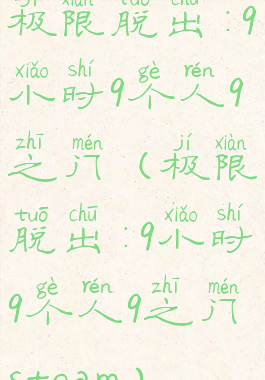 jí xiàn tuō chū
极限脱出:9
xiǎo shí gè rén
小时9个人9
zhī mén jí xiàn
之门(极限
tuō chū xiǎo shí
脱出:9小时
gè rén zhī mén
9个人9之门
steam)